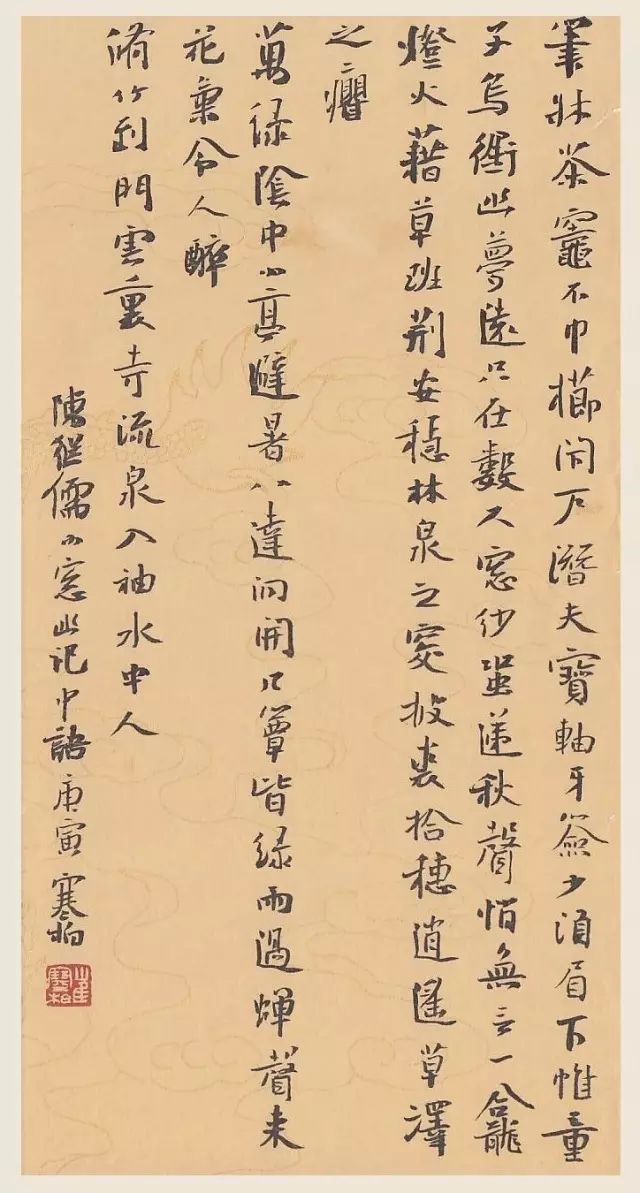 筆牀茶竈不巾櫛閉戶潛夫寶軸牙籤少須眉下帷董
子鳥銜幽夢遠只在數尺窗紗蛩遞秋聲悄無言一龕
燈火藉草班荊安穩林泉之窔披裘拾穗逍遙草澤
之癯
萬綠陰中小亭避暑八達洞開几簟皆綠雨過蟬聲來
花氣令人醉
脩竹到門雲裏寺流泉入袖水中人
陳繼儒小窗幽記中語庚寅寒柏
崔寒柏